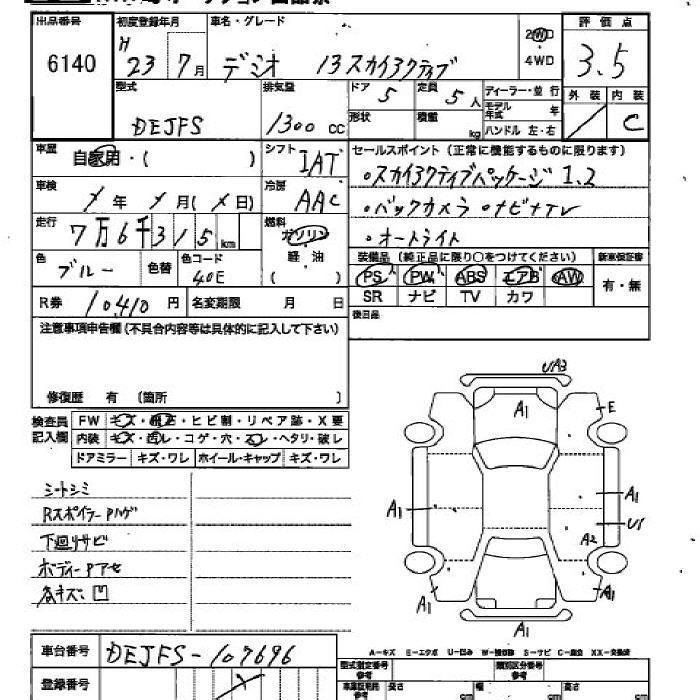 出品番号 初度登録年月 車名・グレード 評価点
6140 H 23 7月 デミオ 13スカイアクティブ 2WD 4WD 3.5
型式 排気量 ドア 5 定員 5人 ディーラー・並行 外装 内装
DEJFS 1300cc 形状 積載 kg モデル年式 年 ハンドル 左・右 / C
車歴 自家用・( ) シフト IAT セールスポイント(正常に機能するものに限ります)
車検 / 年 / 月( / 日) 冷房 AAC ・スカイアクティブパッケージ1.2
走行 7万6千315km 燃料 ガソリン ・バックカメラ ・ナビナTV
軽・油 ・オートライト
色 ブルー 色替 色コード 40E ( ) 装備品(純正品に限り○をつけてください) 新車保証書
PS PW ABS エアB AW 有・無
R券 10410円 名変期限 月 日 SR ナビ TV カワ
注意事項申告欄(不具合内容等は具体的に記入して下さい) 後日品
修復歴 有 〔箇所 〕
検査員記入欄 FW キズ・補正・ヒビ割・リペア跡・X要
内装 キズ・汚レ・コゲ・穴・スレ・ヘタリ・破レ
ドアミラー キズ・ワレ ホイール・キャップ キズ・ワレ
シートシミ
Rスポイラーpハゲ
下廻りサビ
ボディーPアセ
各キズ:凹
UA3
A1 E
A1 A1
U1
A2
A1 A1
A1
A-キズ E-エクボ U-凹み W-補修跡 S-サビ C-腐食 XX-交換済
車台番号 DEJFS-107696
登録番号
型式指定番号 参考 類別区分番号 参考
車庫証明用 参考 長さ cm 幅 cm 高さ cm